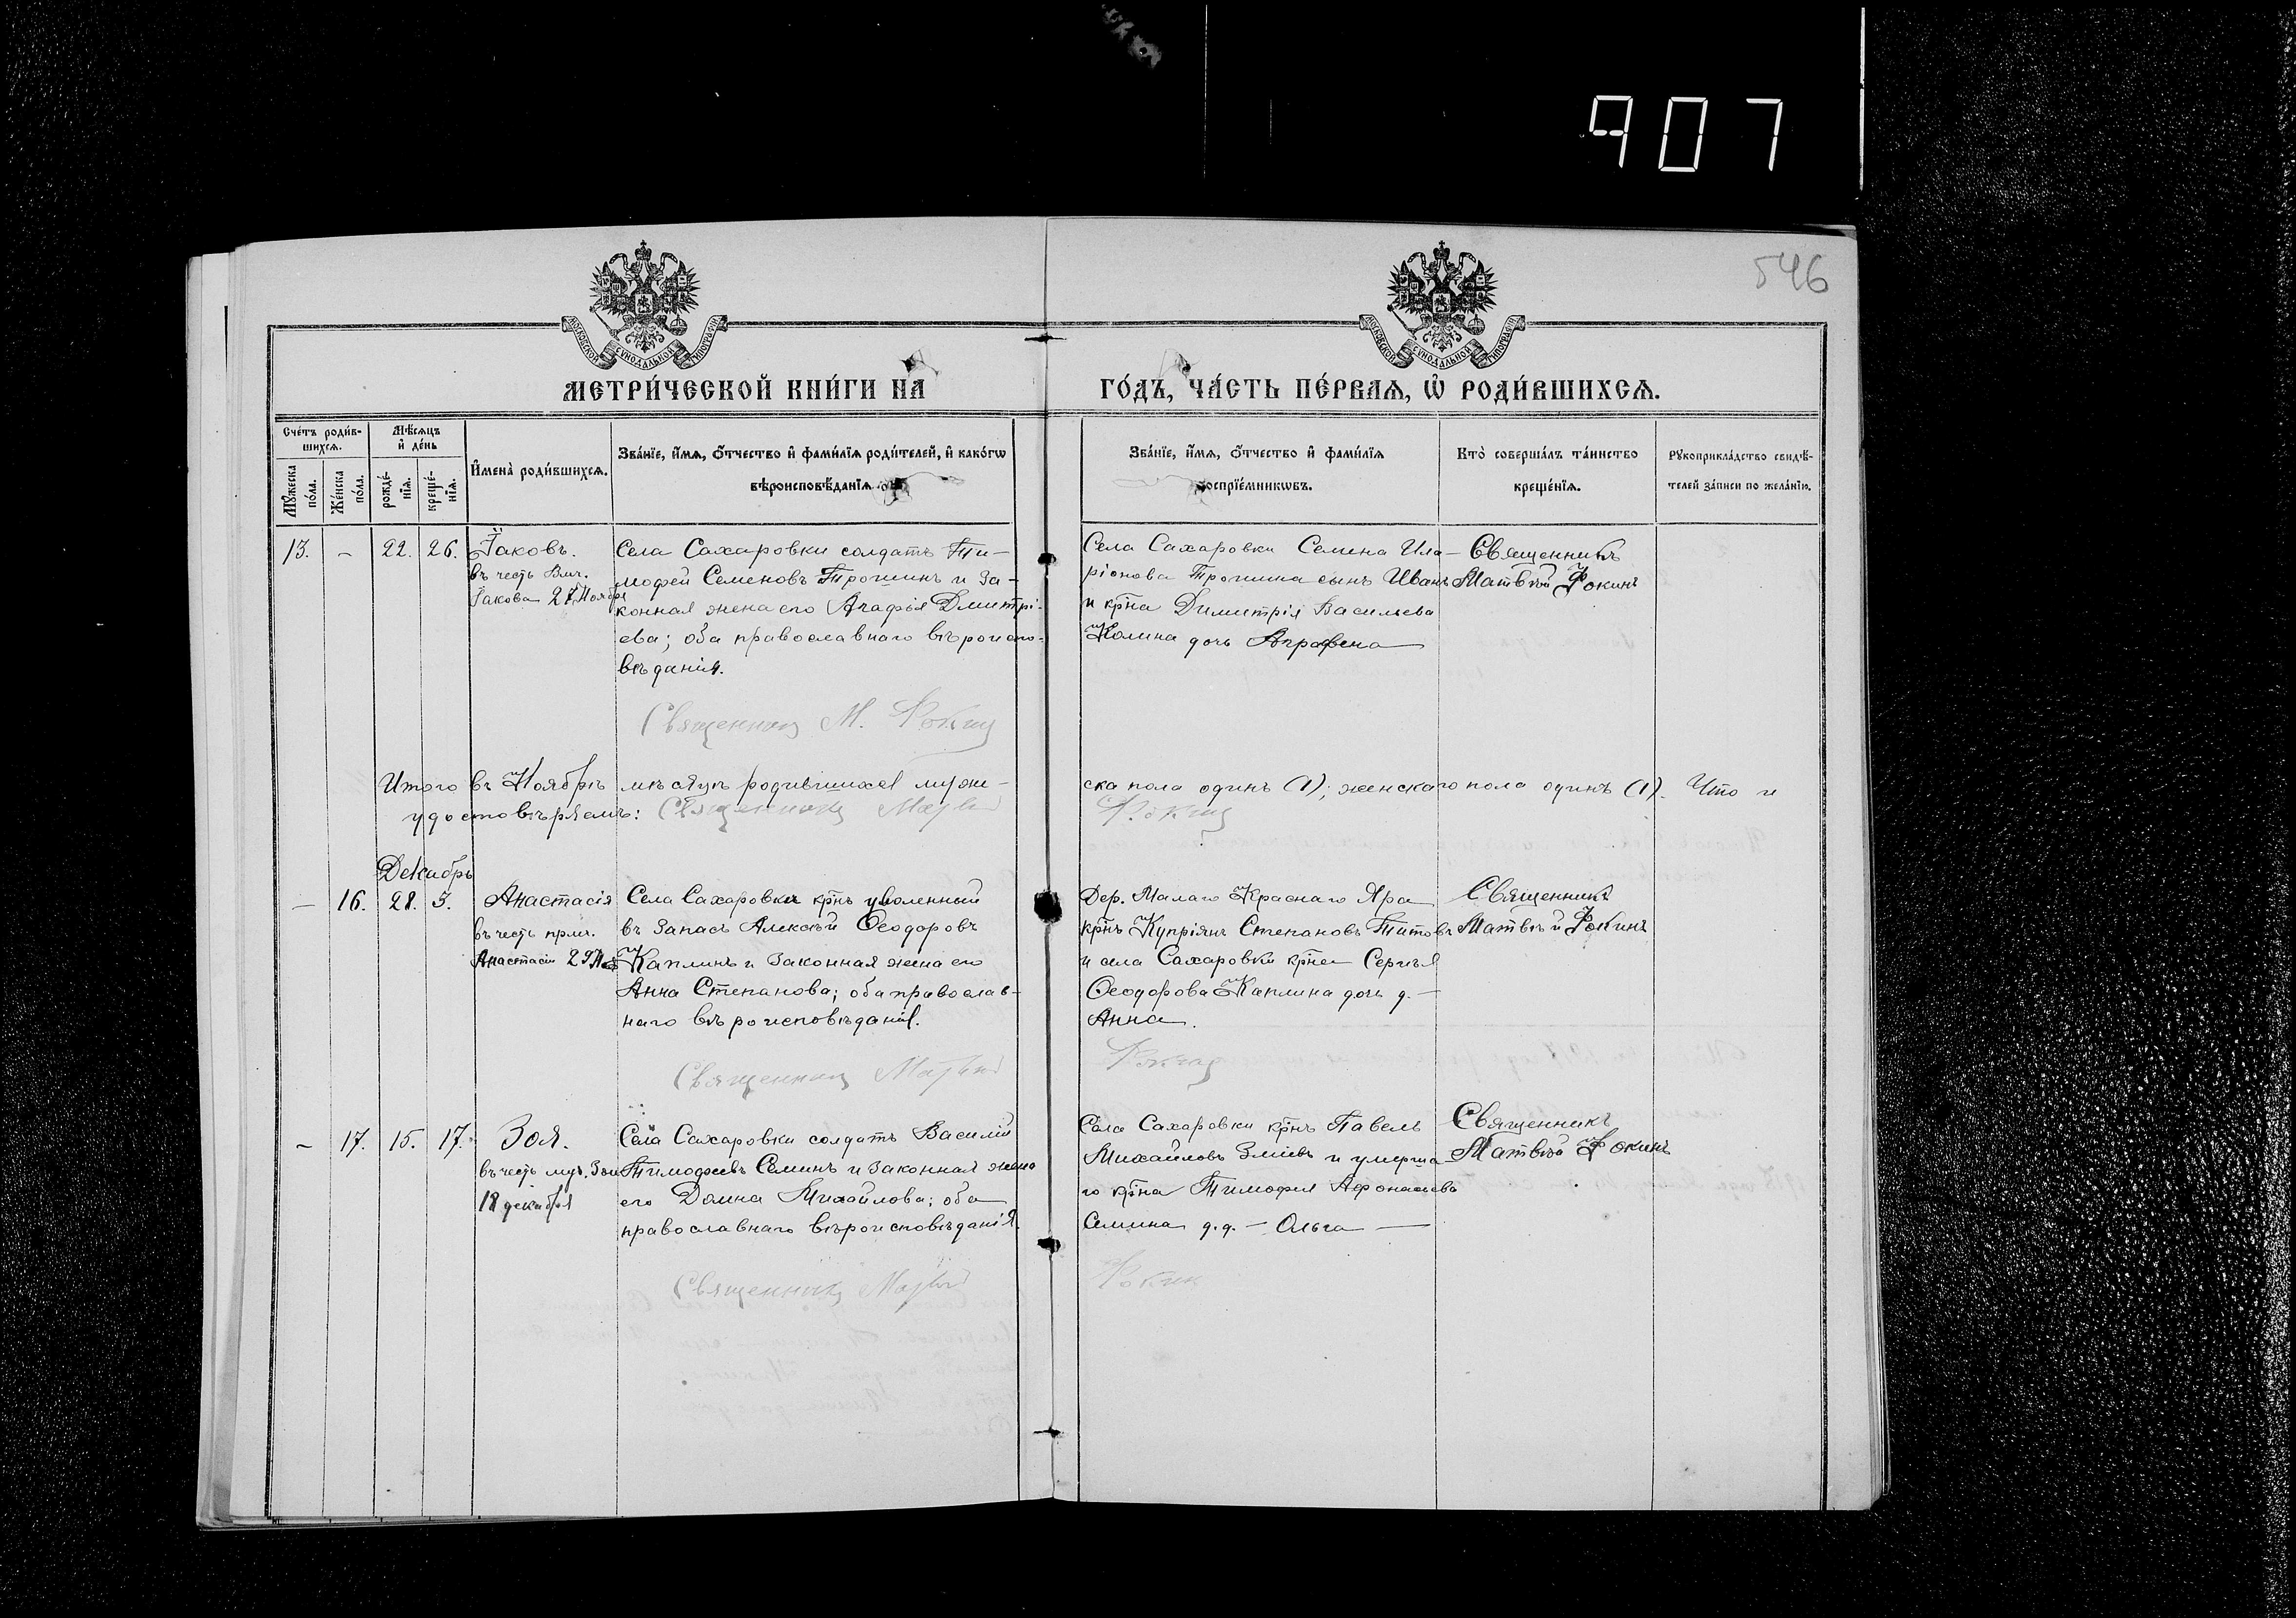 907
546
МОСКОВСКОЙ СѴНОДАЛЬНОЙ ТИПОГРАФІИ
МОСКОВСКОЙ СѴНОДАЛЬНОЙ ТИПОГРАФІИ
МЕТРИ́ЧЕСКОЙ КНИ́ГИ НА
ГО́ДЪ, ЧА́СТЬ ПЕ́РВАѦ, Ѡ҆ РОДИ́ВШИХСѦ.
Сче́тъ роди́в-
шихсѧ.
Мꙋ́жеска по́ла.
Же́нска по́ла.
Мѣ́сѧцъ
и҆ де́нь
рожде́-
нїѧ.
креще́-
нїѧ.
И҆мена̀ роди́вшихсѧ.
Зва́нїе, и҆́мѧ, ѻ҆́тчество и҆ фами́лїѧ роди́телей, и҆ како́гѡ
вѣроисповѣ́данїѧ
Зва́нїе, и҆́мѧ, ѻ҆́тчество и҆ фами́лїѧ
воспрїе́мникѡвъ.
Кто̀ соверша́лъ та́инство
креще́нїѧ.
Рꙋкоприкла́дство свидѣ́-
телей за́писи по жела́нїю.
13. - 22. 26. Іаковъ.
въ честь Влмч.
Іакова 27 Ноября
Села Сахаровки солдатъ Ти-
мофей Семеновъ Трошинъ и за-
конная жена его Агафья Дмитрі-
ева; оба православнаго вѣроиспо-
вѣданія.
Священникъ М. Фокинъ
Села Сахаровки Семена Ила-
ріонова Трошина сынъ Иванъ
и кр̃на Димитрія Васильева
дочь Аграфена
Священникъ
Матвѣй Фокинъ
Итого въ Ноябрѣ мѣсяцѣ родившихся муже-
ска пола одинъ (1); женскаго пола одинъ (1). Что и
удостовѣряемъ: Священникъ Матвѣй
Фокинъ
Декабрь
- 16. 28. 3. Анастасія
въ честь прмч.
Анастасіи
Села Сахаровки кр̃нъ уволенный
въ запасъ Алексѣй Ѳеодоровъ
Каплинъ и законная жена его
Анна Степанова; оба православ-
наго вѣроисповѣданія.
Священникъ Матвѣй
Дер. Малаго Краснаго Яра
кр̃нъ Купріянъ Степановъ Титовъ
и села Сахаровки кр̃на Сергѣя
Ѳеодорова Каплина дочь д. -
Анна.
Фокинъ
Священникъ
Матвѣй Фокинъ
- 17. 15. 17. Зоя.
въ честь муч. Зои
18 декабря
Села Сахаровки солдатъ Василій
Тимофеевъ Семинъ и законная жена
его Домна Михайлова; оба
православнаго вѣроисповѣданія.
Священникъ Матвѣй
Села Сахаровки кр̃нъ Павелъ
Михайловъ Зміевъ и умерша
го кр̃на Тимофея Афонасьева
Семина д.д. - Ольга -
Фокинъ
Священникъ
Матвѣй Фокинъ